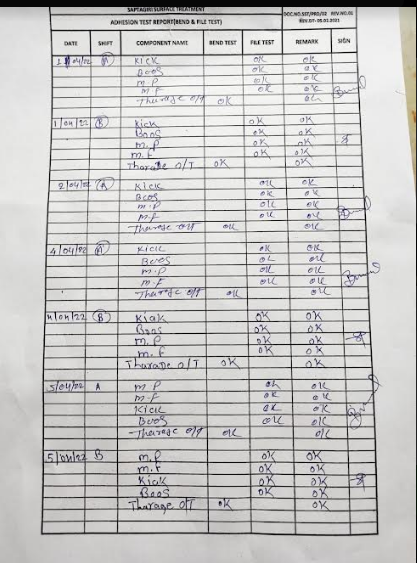 SAPTAGIRI SURFACE TREATMENT
ADHESION TEST REPORT(BEND & FILE TEST)
DOC.NO.SST/PRO/02 REV.NO.01
REV.DT- 05.01.2021
DATE SHIFT COMPONENT NAME BEND TEST FILE TEST REMARK SIGN
1/04/22 A Kick OK OK
Boos OK OK
m.p OK OK
m.f OK OK
Tharage o/t OK OK
1/04/22 B Kick OK OK
Boos OK OK
m.p OK OK
m.f OK OK
Tharage o/T OK OK
2/04/22 A Kick OK OK
Boos OK OK
m.p OK OK
m.f OK OK
Tharage o/t OK OK
4/04/22 A Kick OK OK
Boos OK OK
m.p OK OK
m.f OK OK
Tharage o/t OK OK
4/04/22 B Kick OK OK
Boos OK OK
m.p. OK OK
m.f OK OK
Tharage o/T OK OK
5/04/22 A m.p OK OK
m.f OK OK
Kick OK OK
Boos OK OK
Tharage o/t OK OK
5/04/22 B m.p OK OK
m.f OK OK
Kick OK OK
Boos OK OK
Tharage o/T OK OK